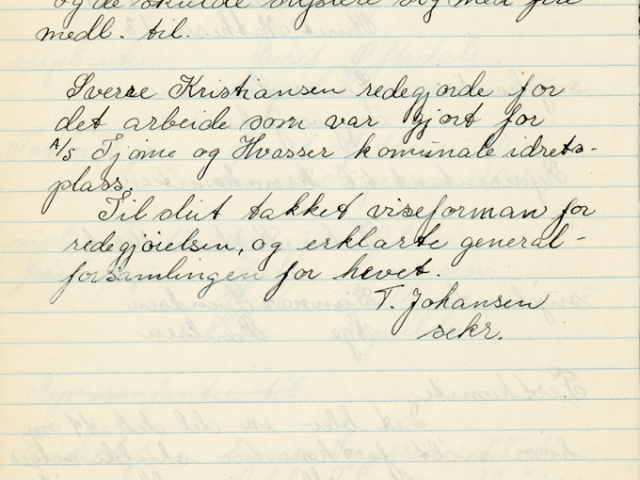 og de skulde suplere sig med fire
medl. til.
Sverre Kristiansen redegjorde for
det arbeide som var gjort for
A/S Tjøme og Hvasser komunale idrets-
plass.
Til slut takket viseforman for
redegjørelsen, og erklærte general-
forsamlingen for hevet.
T. Johansen
sekr.